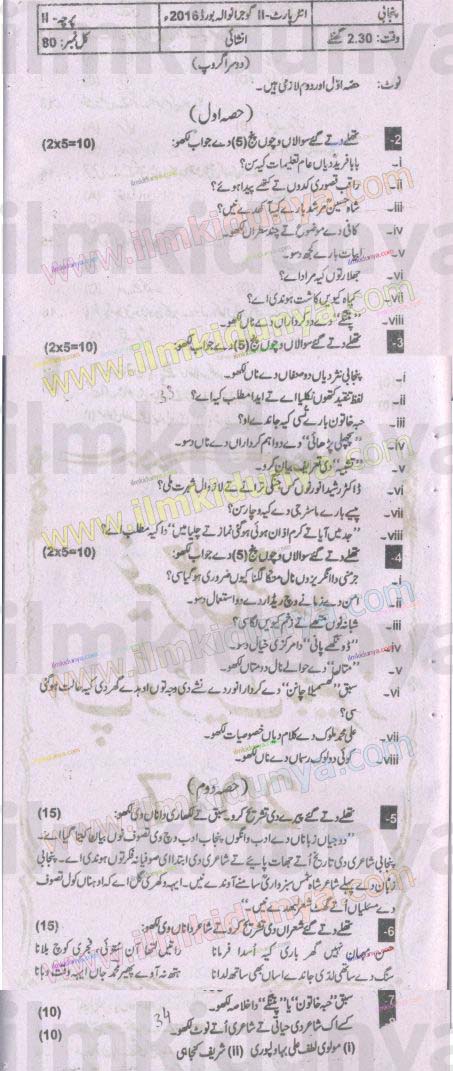 پنجابی انٹر پارٹ-II گوجرانوالہ بورڈ 2016ء پرچہ-II
وقت: 2.30 گھنٹے انشائی کل نمبر: 80
(دوسرا گروپ)
نوٹ: حصہ اوّل اور دوم لازمی ہیں۔
(حصہ اول)
2- تھلے دتے گئے سوالاں وچوں پنج (5) دے جواب لکھو: (2x5=10)
i- بابا فریدؒ دیاں عام تعلیمات کیہ سن؟
ii- راقب قصوری کدوں تے کتھے پیدا ہوئے؟
iii- شاہ حسینؒ مرشد بارے کیہ آکھدے نیں؟
iv- کافی دے موضوع تے چند سطراں لکھو۔
v- ابیات بارے کچھ دسو۔
vi- جھلار توں کیہ مراد اے؟
vii- کپاہ کیویں کاشت ہوندی اے؟
viii- "پتنگے" دے دو کرداراں دے ناں لکھو۔
3- تھلے دتے گئے سوالاں وچوں پنج (5) دے جواب لکھو: (2x5=10)
i- پنجابی نثر دیاں دو صنفاں دے ناں لکھو۔
ii- لفظ تنقید کتھوں نکلیا اے تے ایدا مطلب کیہ اے؟
iii- حبہ خاتون بارے تسی کیہ جاندے او؟
iv- "مچھلی پڑھائی" دے دو اہم کرداراں دے ناں دسو۔
v- دی تعریف بیان کرو۔
vi- ڈاکٹر رشید انور نوں کس جنگی ترانے تے لازوال شہرت ملی؟
vii- پیسے بارے ماسٹر جی دے کیہ وچار سن؟
viii- "جد میں آیا تے کرم اذان ہوئی ہوگئی نماز تے چلیا میں" دا کیہ مطلب اے؟
4- تھلے دتے گئے سوالاں وچوں پنج (5) دے جواب لکھو: (2x5=10)
i- جرمنی دا انگریزوں نال متھا لگنا کیوں ضروری ہو گیا سی؟
ii- امن دے زمانے وچ ریڈار دے دو استعمال دسو۔
iii- شبانہ نوں متھے تے زخم کیویں لگا سی؟
iv- "ڈونگھے پانی" دا مرکزی خیال دسو۔
v- "متاں" دے حوالے نال دو متاں لکھو۔
vi- سبق "گھسمیلا چانن" دے کردار انور دے نشے دی وجہ توں اوہدے گھر دی کیہ حالت ہو گئی
سی؟
vii- علی محمد ملوک دے کلام دیاں خصوصیات لکھو۔
viii- کوئی دو لوک رسماں دے ناں لکھو۔
(حصہ دوم)
5- تھلے دتے گئے پیرے دی تشریح کرو۔ سبق تے لکھاری دا ناں وی لکھو: (15)
"دوجیاں زباناں دے ادب وانگوں پنجاب ادب وچ وی تصوف نوں بیان کیتا گیا اے۔
پنجابی شاعری دی تاریخ اُتے جھات پائیے تے شاعری دی ابتدا ای صوفیانہ فکر توں ہوندی اے۔ پنجابی
زبان دے پہلے شاعر شاہ شمس سبزواری سامنے آوندے نیں۔ ایہہ وکھری گل اے کہ اوہناں کول تصوف
دے مسئلیاں اُتے گھٹ شعر لبھدے نیں۔"
6- تھلے دتے گئے شعراں دی تشریح کرو تے شاعر دا ناں وی لکھو: (15)
حسن نہیں گھر باری کیہ اسدا فرمانا راتیں لتھا آن ستھوئی فجری کوچ بلانا
سنگ دے ساتھی لدی جاندے اساں بھی ساتھ لدانا ہتھ نہ آوے پھیر محمد جاں ایہہ وقت وہانا
7- سبق "حبہ خاتون" یا "پتنگے" دا خلاصہ لکھو۔ (10)
کسے اک شاعر دی حیاتی تے شاعری اُتے نوٹ لکھو۔ (10)
(i) مولوی لطف علی بہاولپوری (ii) شریف کنجاہی
34
www.ilmkidunya.com